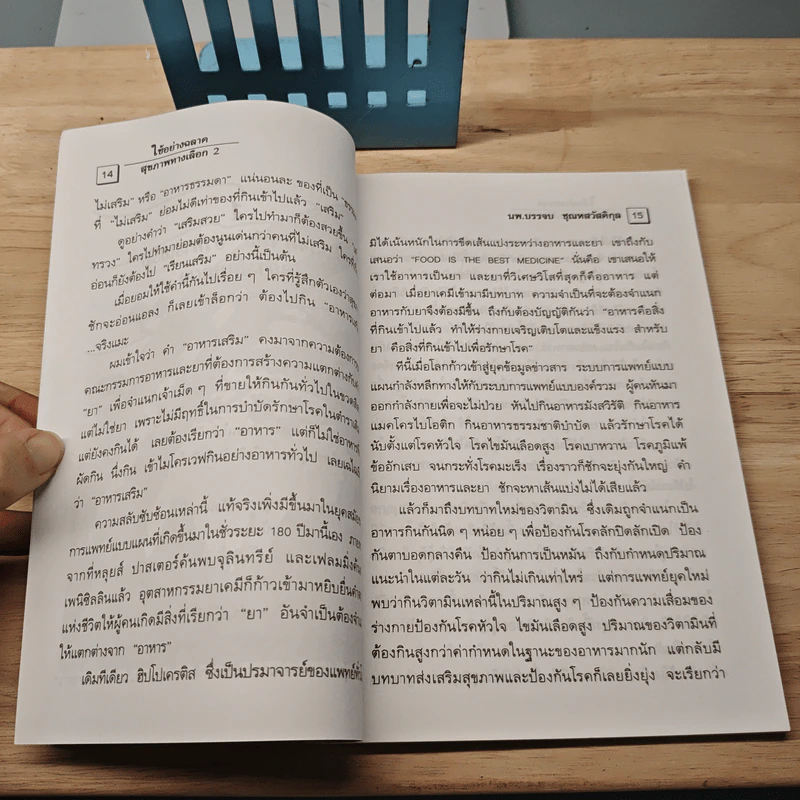 ใช้อย่างฉลาด
สุขภาพทางเลือก 2
14
ไม่เสริม" หรือ "อาหารธรรมดา" แน่นอนละ ของที่เป็น
ที่ "ไม่เสริม" ย่อมไม่ดีเท่าของที่กินเข้าไปแล้ว "เสริม"
ดูอย่างคำว่า "เสริมสวย" ใครไปทำมาก็ต้องสวยขึ้น
ทรวง" ใครไปทำมาย่อมต้องนูนเด่นกว่าคนที่ไม่เสริม
อ่อนก็ยังต้องไป "เรียนเสริม" อย่างนี้เป็นต้น
เมื่อยอมให้ใช้คำนี้กันไปเรื่อย ๆ ใครที่รู้สึกตัวเองว่า
ชักจะอ่อนแอลง ก็เลยเข้าล็อกว่า ต้องไปกิน
...จริงแมะ
ผมเข้าใจว่า คำ "อาหารเสริม" คงมาจากความต้องการ
คณะกรรมการอาหารและยาที่ต้องการสร้างความแตกต่างกับ
"ยา" เพื่อจำแนกเจ้าเม็ด ๆ ที่ขายให้กินกันทั่วไปในขวด
แต่ไม่ใช่ยา เพราะไม่มีฤทธิ์ในการบำบัดรักษาโรคในตำรา
แต่ยังคงกินได้ เลยต้องเรียกว่า "อาหาร" แต่ก็ไม่ใช่อาหาร
ผัดกิน นึ่งกิน เข้าไมโครเวฟกินอย่างอาหารทั่วไป
ว่า "อาหารเสริม"
ความสลับซับซ้อนเหล่านี้ แท้จริงเพิ่งมีขึ้นมาในยุคสมัย
การแพทย์แบบแผนที่เกิดขึ้นมาในชั่วระยะ 180 ปีมานี้เอง
จากที่หลุยส์ ปาสเตอร์ค้นพบจุลินทรีย์ และเฟลมมิ่งค้น
เพนิซิลลินแล้ว อุตสาหกรรมยาเคมีก็ก้าวเข้ามาหยิบยื่น
แห่งชีวิตให้ผู้คนเกิดมีสิ่งที่เรียกว่า "ยา" อันจำเป็นต้อง
ให้แตกต่างจาก "อาหาร"
เดิมทีเดียว ฮิปโปเครติส ซึ่งเป็นปรมาจารย์ของแพทย์
นพ.บรรจบ ชุณหสวัสดิกุล 15
มิได้เน้นหนักในการขีดเส้นแบ่งระหว่างอาหารและยา เขาถึงกับ
เสนอว่า "FOOD IS THE BEST MEDICINE" นั่นคือ เขาเสนอให้
เราใช้อาหารเป็นยา และยาที่วิเศษวิโสที่สุดก็คืออาหาร แต่
ต่อมา เมื่อยาเคมีเข้ามามีบทบาท ความจำเป็นที่จะต้องจำแนก
อาหารกับยาจึงต้องมีขึ้น ถึงกับต้องบัญญัติกันว่า "อาหารคือสิ่ง
ที่กินเข้าไปแล้ว ทำให้ร่างกายเจริญเติบโตและแข็งแรง สำหรับ
ยา คือสิ่งที่กินเข้าไปเพื่อรักษาโรค"
ทีนี้เมื่อโลกก้าวเข้าสู่ยุคข้อมูลข่าวสาร ระบบการแพทย์แบบ
แผนกำลังหลีกทางให้กับระบบการแพทย์แบบองค์รวม ผู้คนหันมา
ออกกำลังกายเพื่อจะไม่ป่วย หันไปกินอาหารมังสวิรัติ กินอาหาร
แมคโครไบโอติก กินอาหารธรรมชาติบำบัด แล้วรักษาโรคได้
นับตั้งแต่โรคหัวใจ โรคไขมันเลือดสูง โรคเบาหวาน โรคภูมิแพ้
ข้ออักเสบ จนกระทั่งโรคมะเร็ง เรื่องราวก็ชักจะยุ่งกันใหญ่ คำ
นิยามเรื่องอาหารและยา ชักจะหาเส้นแบ่งไม่ได้เสียแล้ว
แล้วก็มาถึงบทบาทใหม่ของวิตามิน ซึ่งเดิมถูกจำแนกเป็น
อาหารกินกันนิด ๆ หน่อย ๆ เพื่อป้องกันโรคลักปิดลักเปิด ป้อง
กันตาบอดกลางคืน ป้องกันการเป็นหมัน ถึงกับกำหนดปริมาณ
แนะนำในแต่ละวัน ว่ากินไม่เกินเท่าไหร่ แต่การแพทย์ยุคใหม่
พบว่ากินวิตามินเหล่านี้ในปริมาณสูง ๆ ป้องกันความเสื่อมของ
ร่างกายป้องกันโรคหัวใจ ไขมันเลือดสูง ปริมาณของวิตามินที่
ต้องกินสูงกว่าค่ากำหนดในฐานะของอาหารมากนัก แต่กลับมี
บทบาทส่งเสริมสุขภาพและป้องกันโรคก็เลยยิ่งยุ่ง จะเรียกว่า